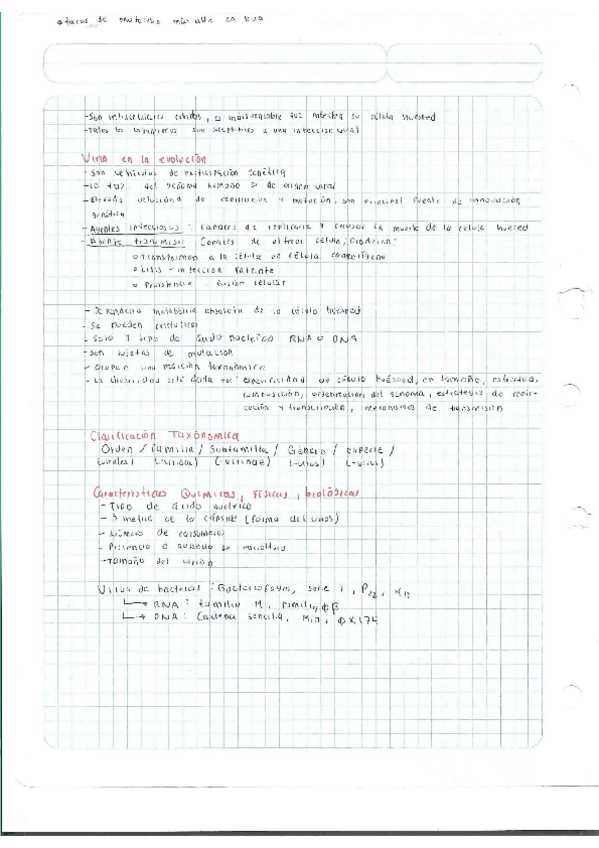 de mutación más alta en RNA
- Son intracelulares, es indispensable que infecten su célula huésped
- Todos los organismos son susceptibles a una infección viral
Virus en la evolución
- Son vehículos de genética
- Lo del genoma humano de origen viral
- Elevada velocidad de replicación y mutación, son principal fuente de innovación
genética
- Agentes infecciosos: Capaces de replicarse y causar la muerte de la célula huésped
- Agente transmisor: Capaces de célula,
o Transforman a la célula en célula
o Lisis - infección
o Persistencia - Fusión celular
- Dependencia metabólica absoluta de la célula huésped
- Se pueden cristalizar
- Solo 1 tipo de ácido nucleico RNA o DNA
- Son sujetos de mutación
- una posición taxonómica
- La diversidad está dada por: especificidad de célula huésped, en tamaño, estructura,
composición, organización del genoma, estrategias de repli-
cación y transcripción, mecanismos de transmisión
Clasificación Taxonómica
Orden / familia / Subfamilia / Género / especie /
(-virales) (-viridae) (-virinae) (-virus) (-virus)
Características Químicas, físicas, biológicas
- Tipo de ácido nucleico
- Simetría de la cápside (forma del virus)
- Número de capsómeros
- Presencia o ausencia de envoltura
- Tamaño del
Virus de bacterias: serie T, P22,
RNA: familia
DNA: Cadena sencilla, M13, ΦX174